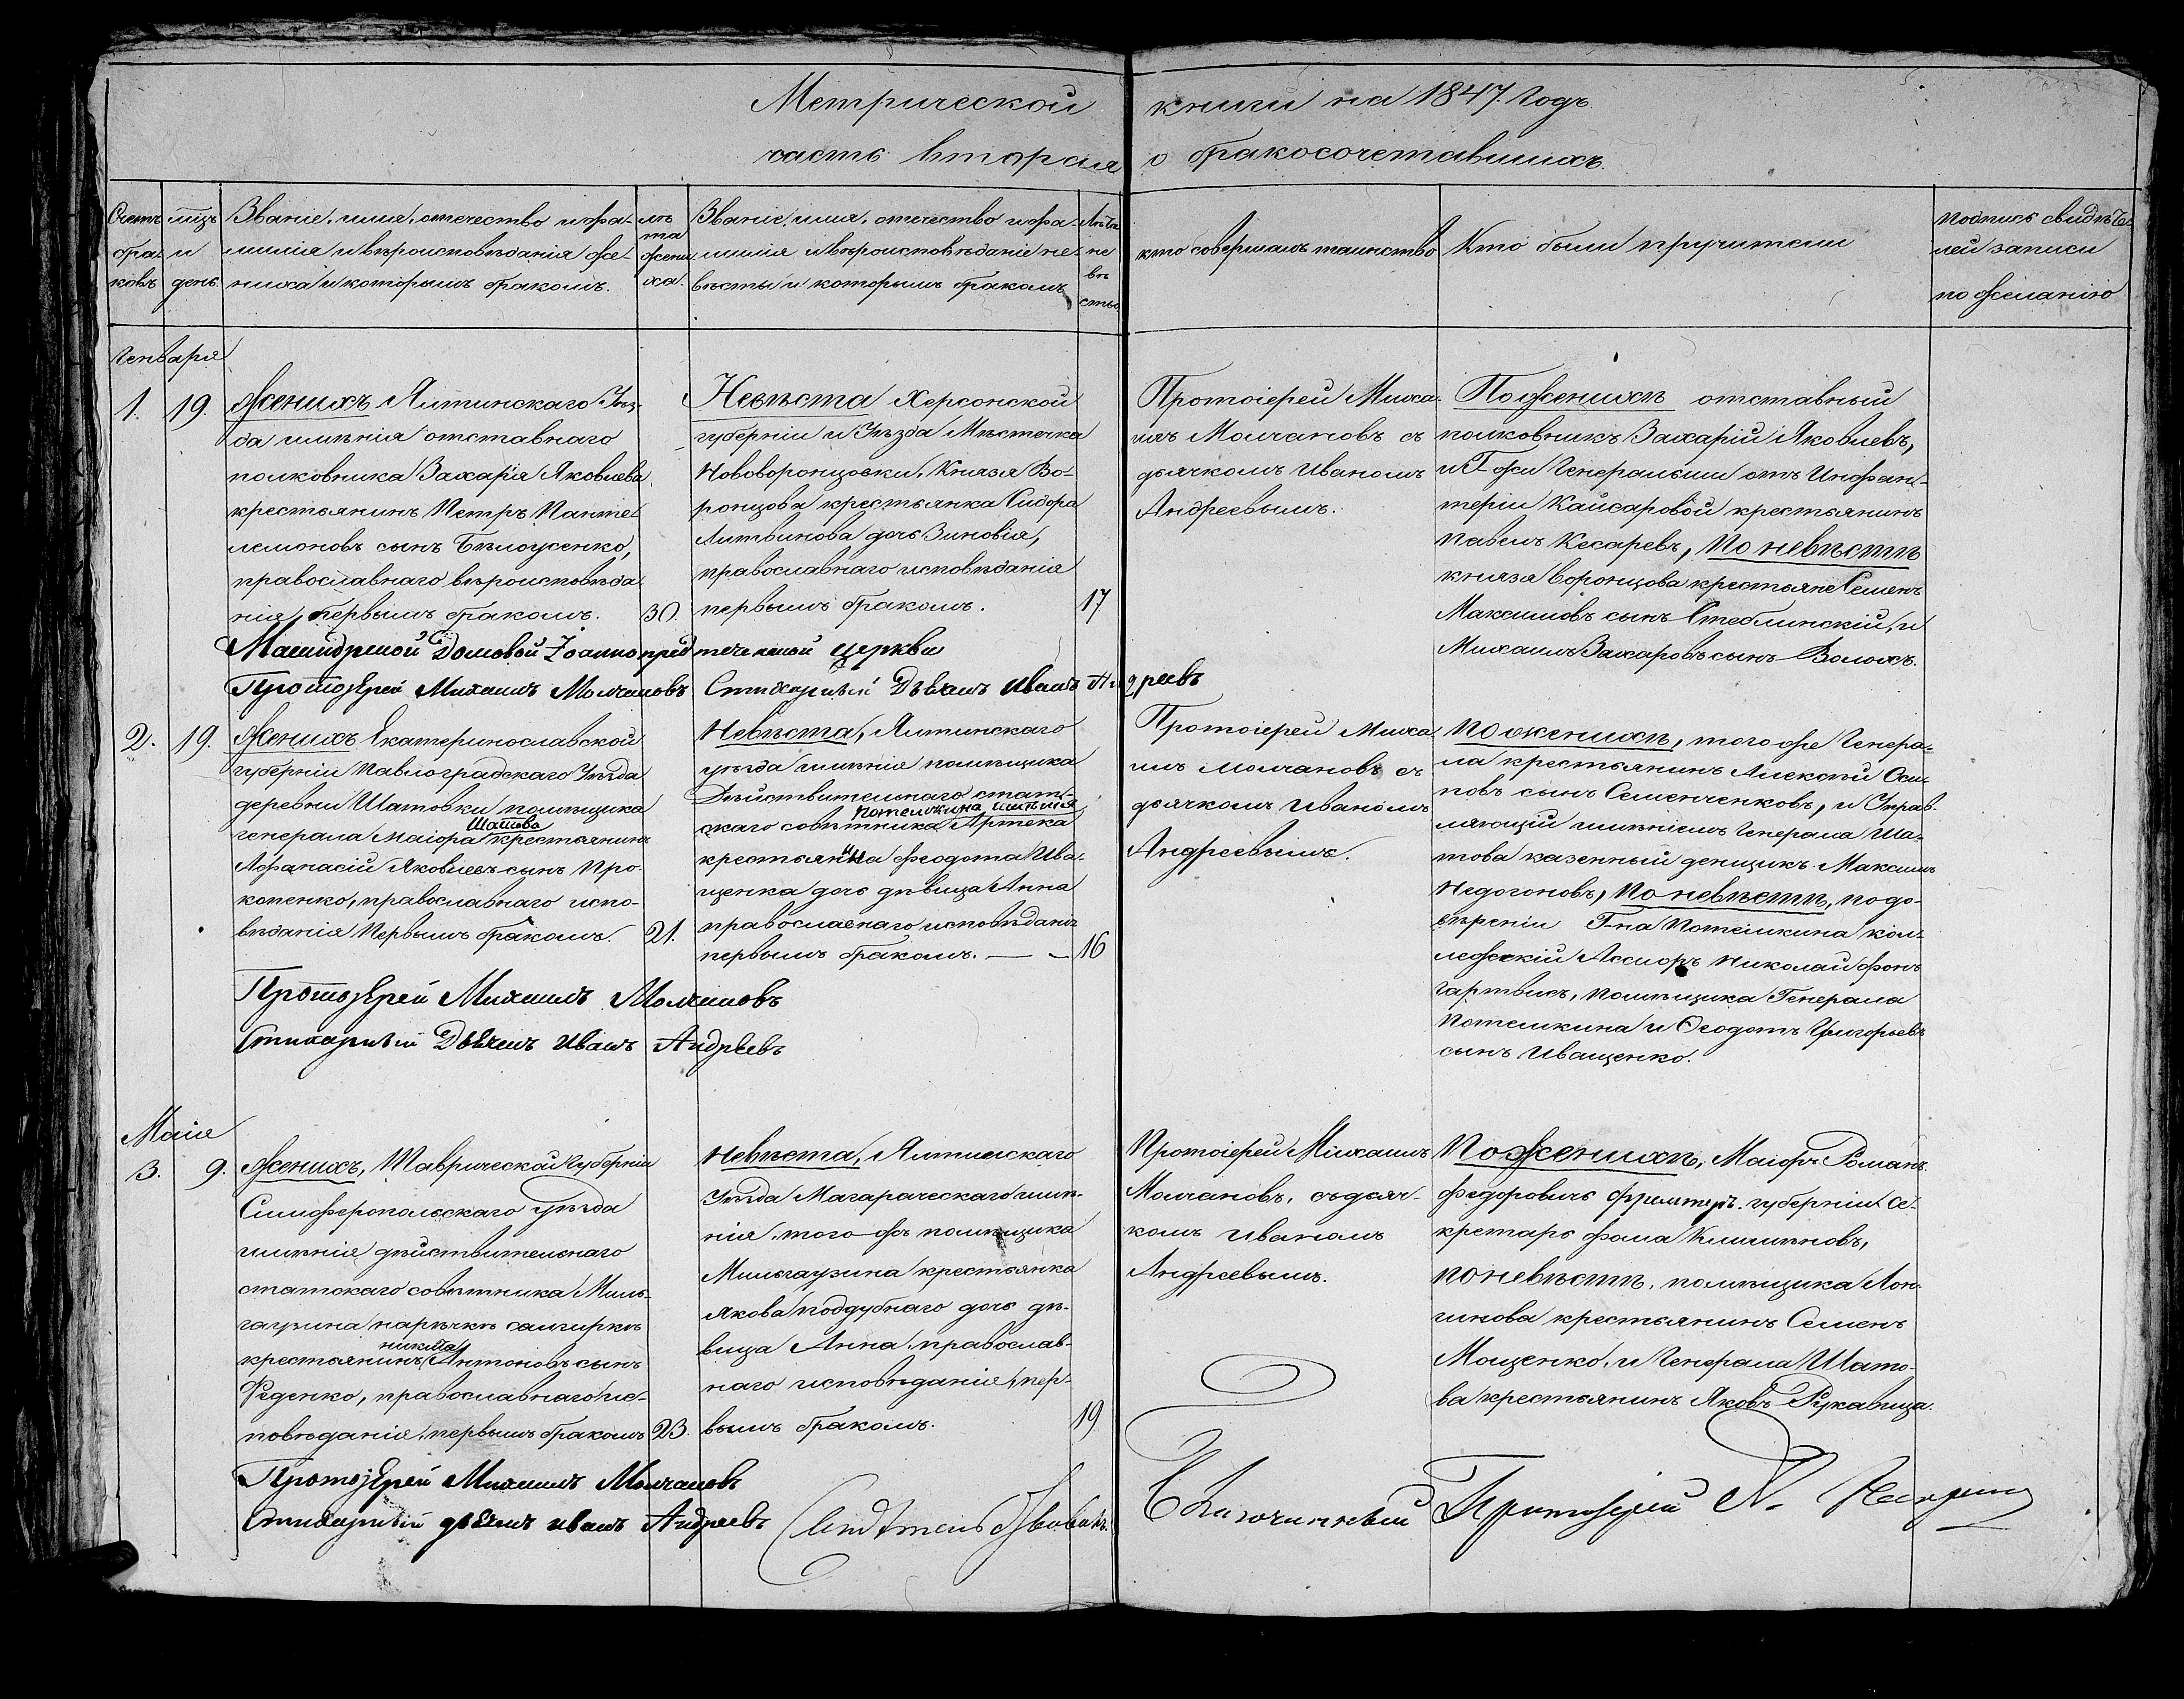 Метрической книги на 1847. Годъ.
часть вторая о бракосочетавшихся.
Счетъ браковъ
мѣць и день
Званіе, имя, отчество и фа-
милія и вѣроисповѣданія же-
ниха и которымъ бракомъ.
лѣта жениха.
Званіе, имя, отчество и фа-
милія и вѣроисповѣданіе не-
вѣсты и которымъ бракомъ
Лѣта невѣсты
кто совершалъ таинство
Кто были пручители
подпись свидѣте-
лей записи
по желанію
Генваря
1.
19.
Женихъ Ялтинскаго Уѣз-
да имѣнія отставнаго
полковника Захарія Яковлева
крестьянинъ Петръ Панте-
лемоновъ сынъ Бѣлоусенко,
православнаго вѣроисповѣда
нія, первымъ бракомъ.
30.
Невѣста Херсонской
губерніи и Уѣзда Мѣстечка
Нововоронцовки, Князя Во-
ронцова крестьянка Сидора
Литвинова дочь Зиновія,
православнаго исповѣданія
первымъ бракомъ.
17
Протоіерей Миха-
илъ Молчановъ съ
дьячкомъ Иваномъ
Андреевымъ.
По женихѣ отставный
полковникъ Захарій Яковлевъ,
и Г-жи Генеральши отъ Инфан-
теріи Кайсаровой крестьянинъ
Павелъ Кесаревъ, По невѣстѣ
князя Воронцова крестьяне Семенъ
Максимовъ сынъ Стеблинскій, и
Михаилъ Захаровъ сынъ Волохъ.
Масандрской Домовой Іоаннопредтеченской церкви
Протоіерей Михаилъ Молчановъ Стихарный Дьячекъ Иванъ Андреевъ
2.
19.
Женихъ Екатеринославской
губерніи Павлоградскаго Уѣзда
деревни Шатовки помѣщика
генерала маіора Шатова крестьянинъ
Афанасій Яковлевъ сынъ Про-
копенко, православнаго испо-
вѣданія Первымъ бракомъ.
21.
Невѣста, Ялтинскаго
уѣзда имѣнія помѣщика
Дѣйствительнаго стат-
скаго совѣтника Потемкина имѣнія Артека
крестьянина Феодота Ива-
щенка дочь дѣвица Анна
православнаго исповѣданія
первымъ бракомъ.
16
Протоіерей Миха
илъ Молчановъ съ
дьячкомъ Иваномъ
Андреевымъ.
По женихѣ, того же Генера-
ла крестьянинъ Алексѣй Оси-
повъ сынъ Семенченковъ, и Управ-
ляющій имѣніемъ Генерала Ша-
това казенный денщикъ Максимъ
Недогоновъ, По невѣстѣ, по до-
вѣренію Г-на Потемкина кол-
лежскій Ассиоръ Николай фонъ
Гартвисъ, помѣщика Генерала
Потемкина и Ѳеодотъ Григорьевъ
сынъ Иващенко.
Протоіерей Михаилъ Молчановъ
Стихарный Дьячекъ Иванъ Андреевъ
Маія
3.
9.
Женихъ, Таврической Губерніи
Симферопольскаго уѣзда
имѣнія дѣйствительнаго
статскаго совѣтника Миль-
гаузина нарѣчкѣ салгиркѣ
крестьянинъ никита Антоновъ сынъ
Феденко, православнаго ис-
повѣданія, первымъ бракомъ
23.
Невѣста, Ялтинскаго
Уѣзда Магарачскаго имѣ-
нія, того жъ помѣщика
Мильгаузина крестьянка
Якова Поддубнаго дочь дѣ-
вица Анна, православ-
наго исповѣданія, пер-
вымъ бракомъ.
19
Протоіерей Михаилъ
Молчановъ, съ дьяч-
комъ Иваномъ
Андреевымъ.
По женихѣ, Маіоръ Романъ
Федоровичъ губерніи се-
кретарь Фома
по невѣстѣ, помѣщика Лон-
гинова крестьянинъ Семенъ
Мощенко, и Генерала Шато-
ва крестьянинъ Яковъ Рукавица.
Протоіерей Михаилъ Молчановъ
Стихарный дьячекъ иванъ Андреевъ
Протоіерей